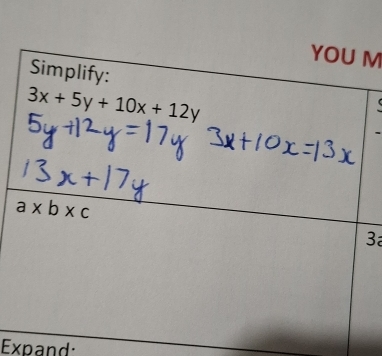 YOU M
Simplify:
3x + 5y + 10x + 12y
5y+12y=17y 3x+10x=13x
13x+17y
a x b x c
3a
Expand: